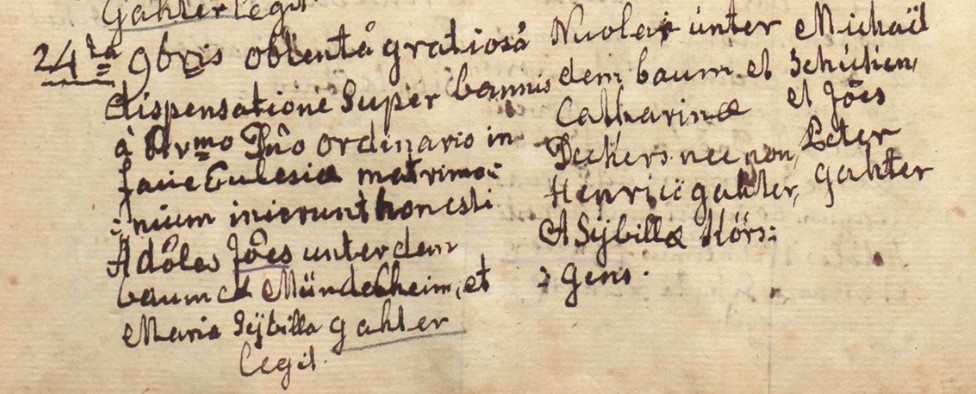 Gahter legit
24ta 9bris obtentâ gratiosâ
dispensatione super bannis
à Rvmo Dño ordinario in
facie Ecclesiæ matrimo:
:nium inierunt honesti
Adôles Jôes unter dem
baum et Mündelheim, et
Maria Sÿbilla gahter
legit.
Nicolai unter
dem baum et
Catharinæ
Deckers nec non
Henrici gahter,
et Sÿbillæ Körs:
:gens.
Michaël
Schücken,
et Jôes
Peter
gahter